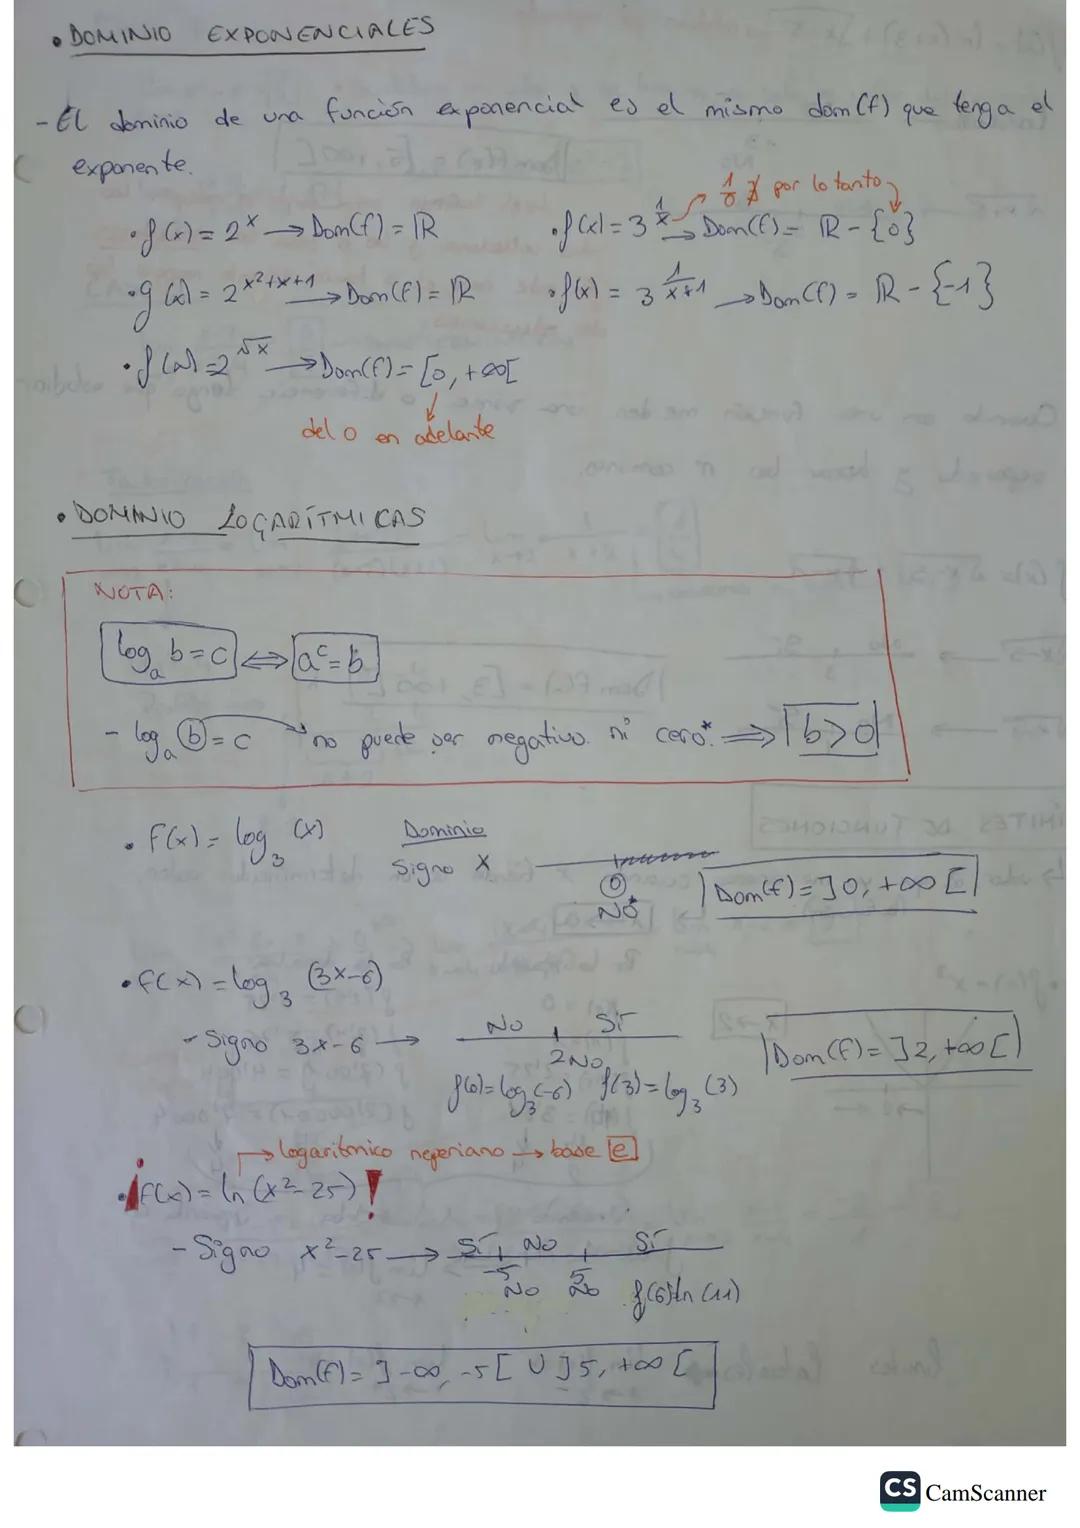 • DOMINIO EXPONENCIALES
- El dominio de una función exponencial es el mismo dom (f) que tenga el
exponente.
1/0 ∄ por lo tanto
• f(x) = 2^x → Dom(f) = ℝ
• f(x) = 3^(1/x) → Dom(f) = ℝ - {0}
• g(x) = 2^(x²+x+1) → Dom(f) = ℝ
• f(x) = 3^(1/(x+1)) → Dom(f) = ℝ - {-1}
• f(x) = 2^√x → Dom(f) = [0, +∞[
del 0 en adelante
• DOMINIO LOGARÍTMICAS
NOTA:
log_a b = c ⟺ a^c = b
- log_a b = c no puede ser negativo ni cero.* ⟹ b > 0
• f(x) = log_3 (x) Dominio
Signo x
0
NO*
Dom(f) = ]0, +∞[
• f(x) = log_3 (3x-6)
- Signo 3x-6 → No Sí
2 No
Dom(f) = ]2, +∞[
f(0) = log_3(-6) f(3) = log_3(3)
→ logaritmico neperiano → base e
• ¡f(x) = ln (x²-25)!
- Signo x²-25 → Sí No Sí
-5 5
No No f(6) ln (11)
Dom(f) = ]-∞, -5[ U ]5, +∞[
CS CamScanner